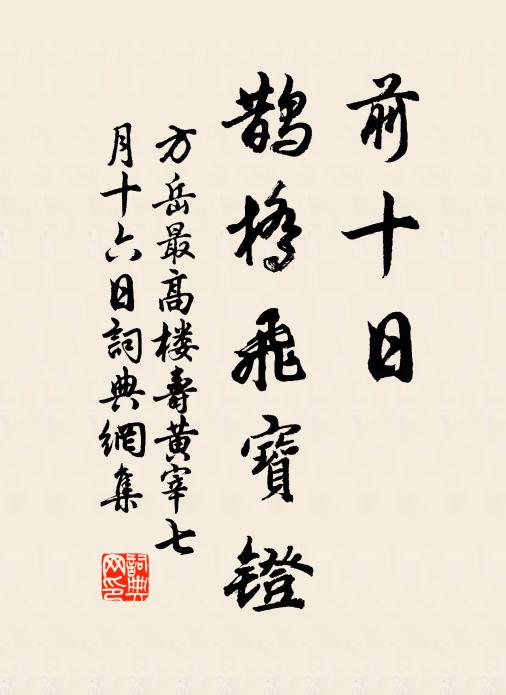 前十日
鹊橋飛寶鐙
方岳最高楼壽黄宰七
月十六日詞典網集
詞典网印